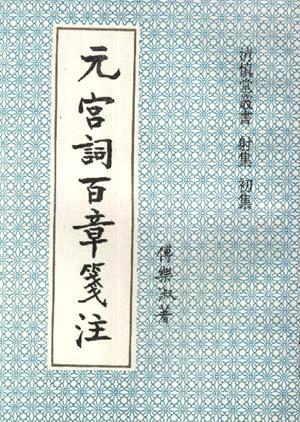 清慎堂叢書 射集 初集
元宮詞百章箋注
傅樂淑著